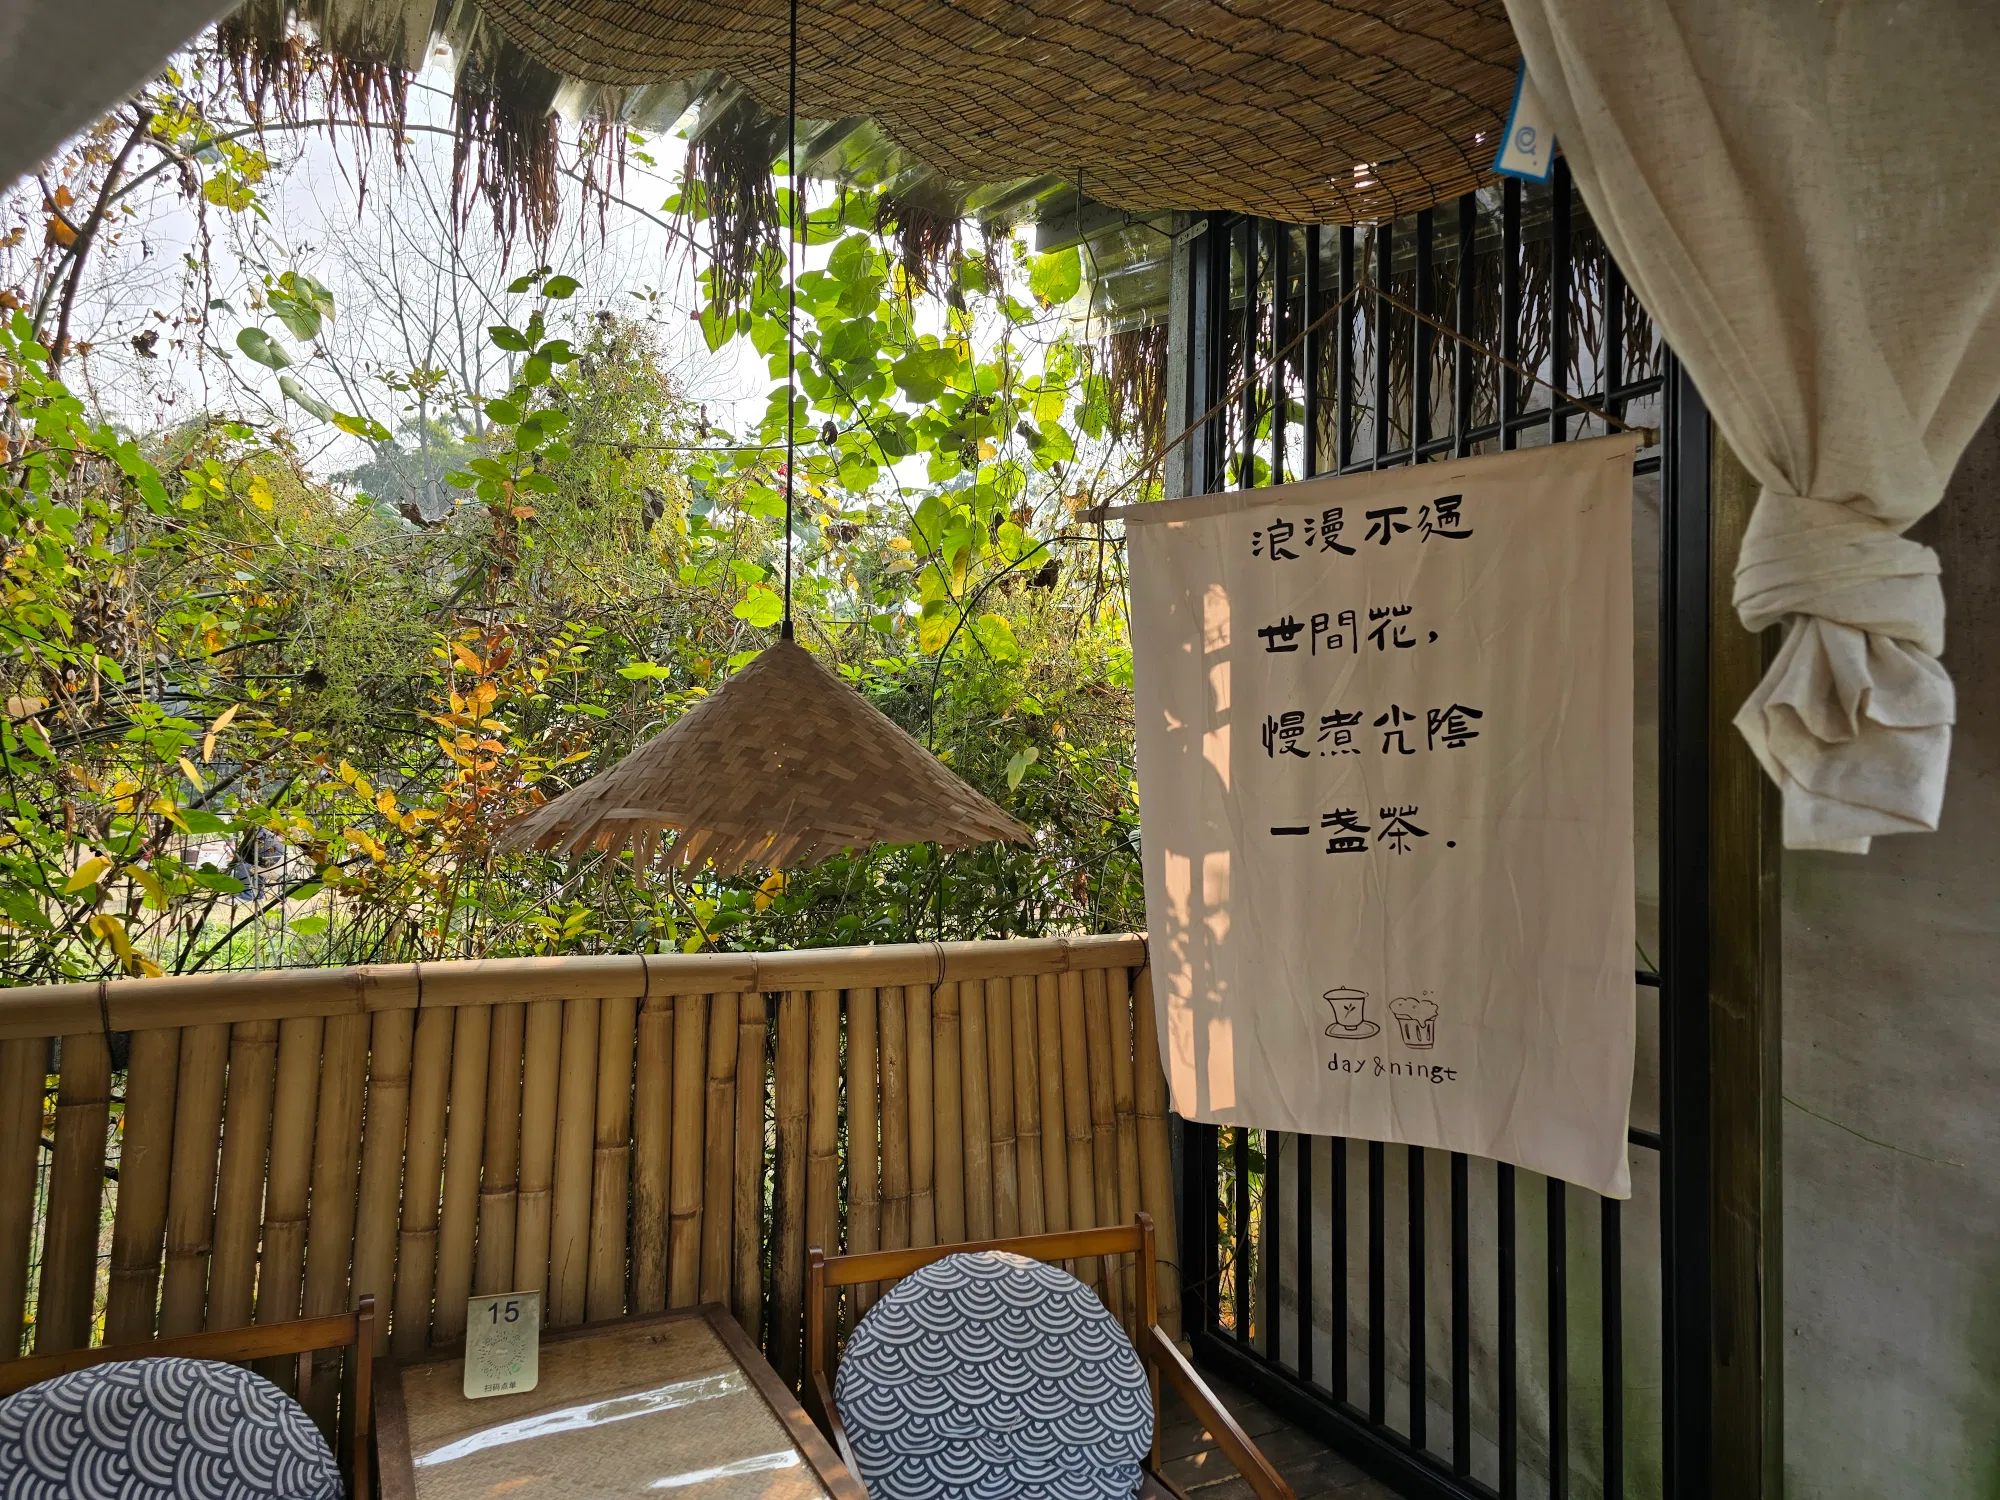 浪漫不過
世間花，
慢煮光陰
一盏茶.
day &ningt
15
扫码点单